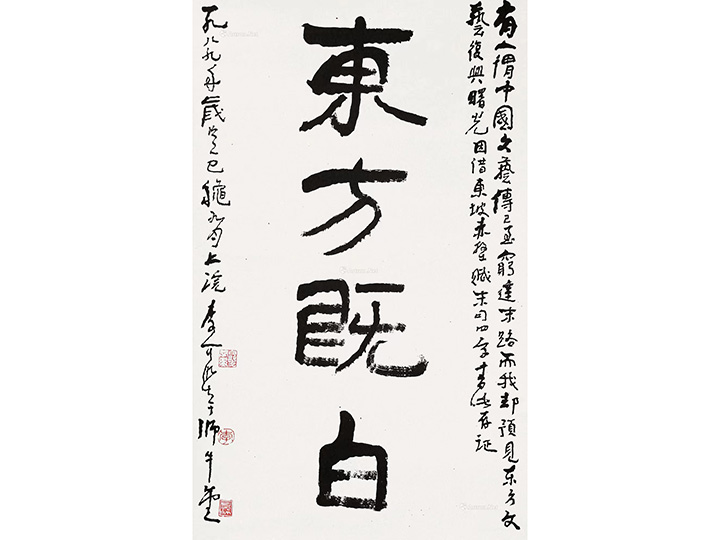 有人謂中國文藝傳已至窮途末路而我却預見东方文
藝復興曙光因借東坡赤壁賦末句四字書此存証
東方既白
一九八九年歲次己巳龝九月上浣李可染于師牛堂